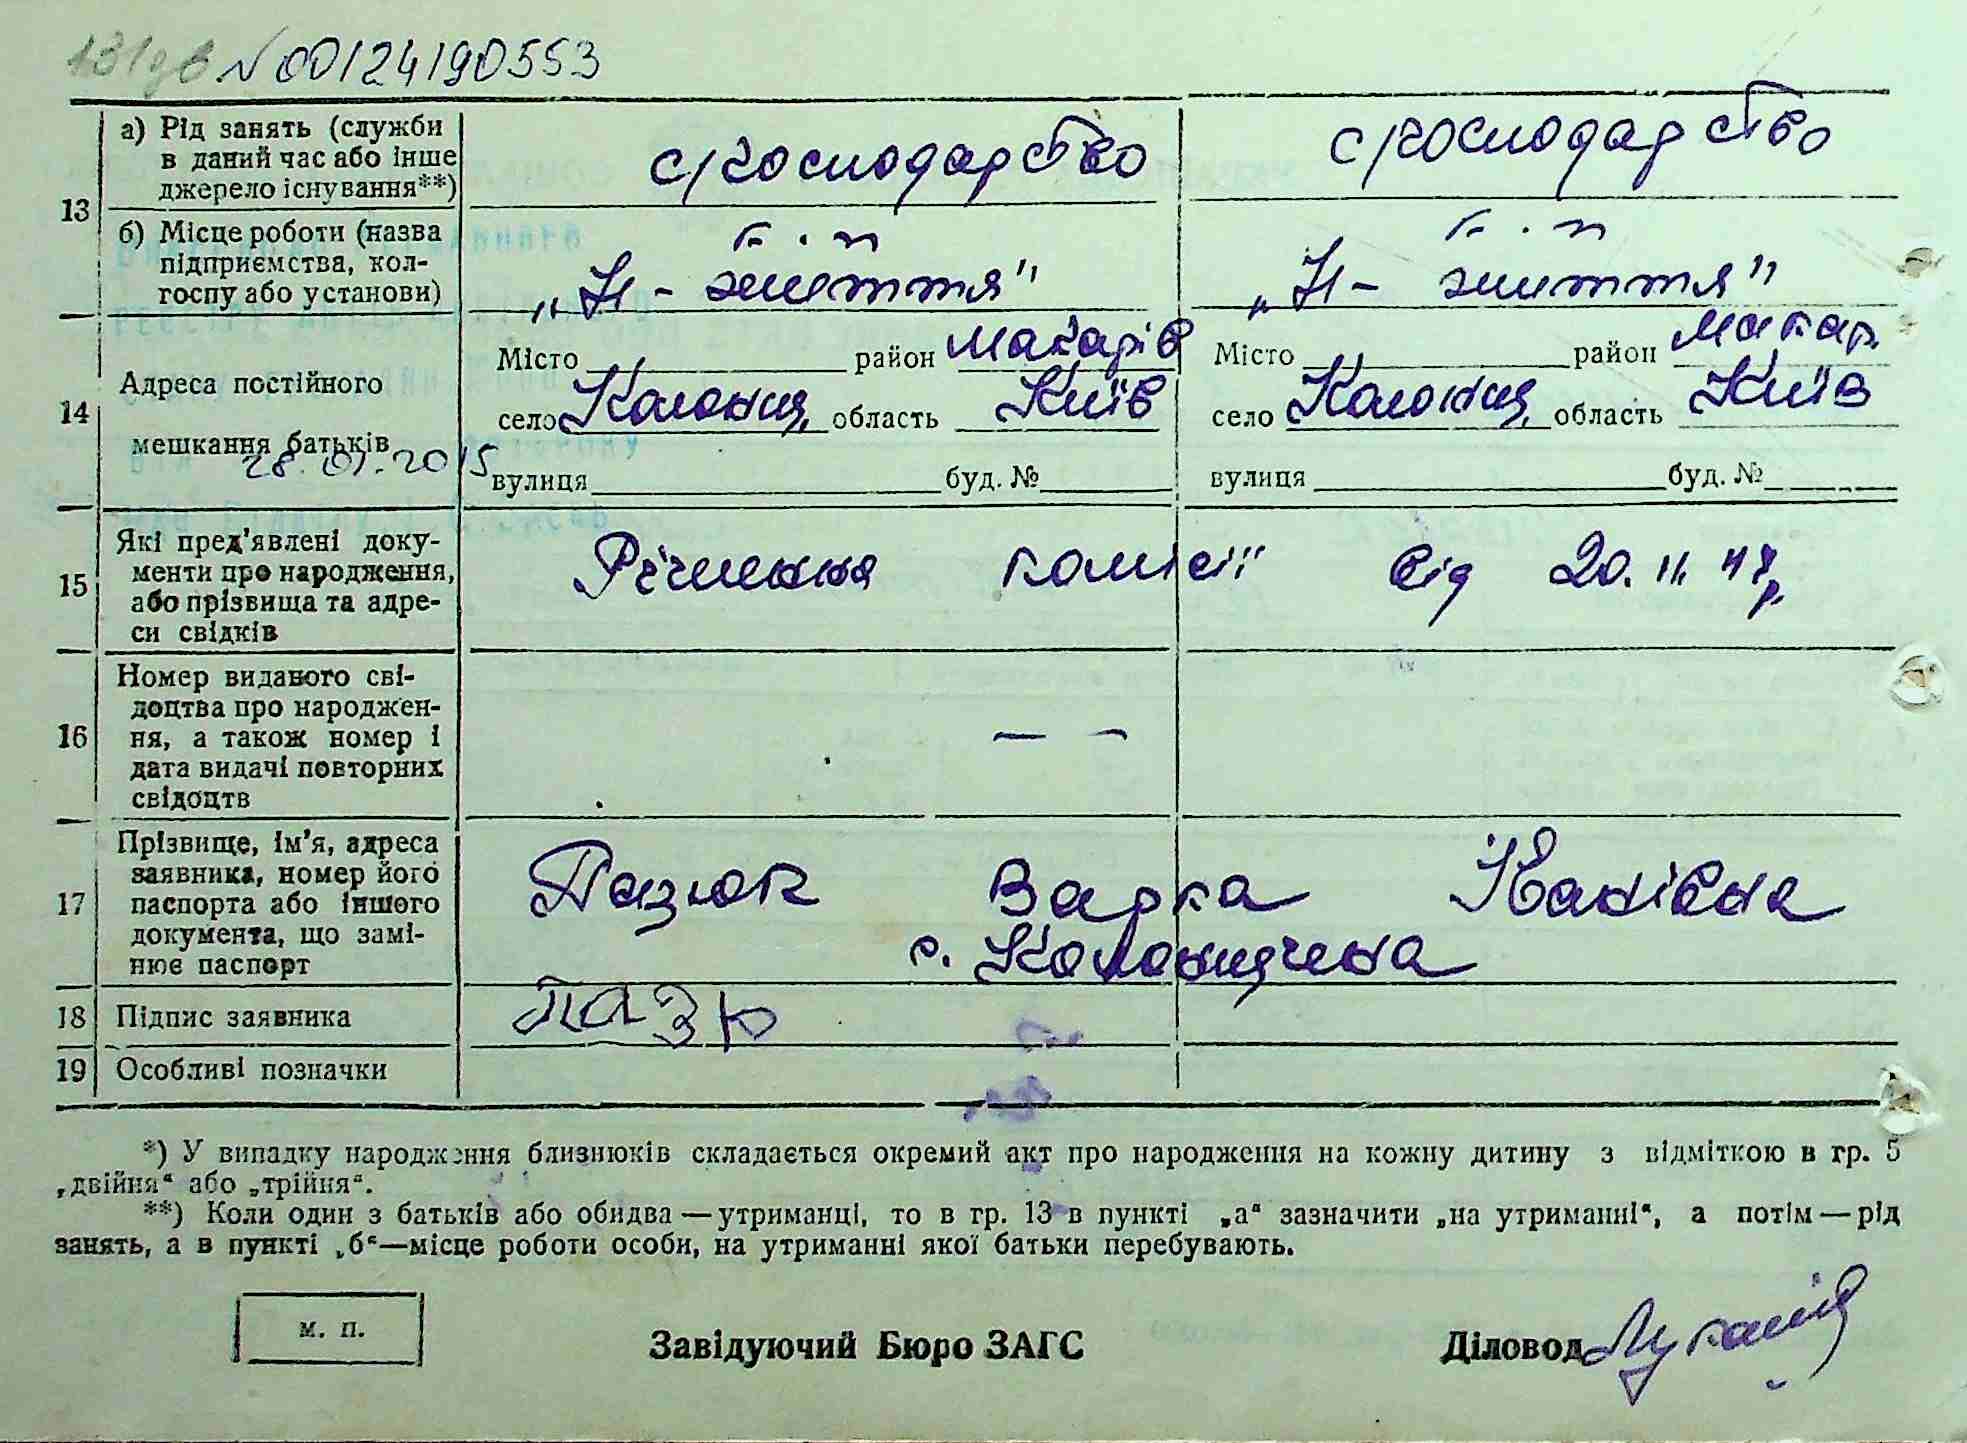 N 00124190553
13
а) Рід занять (служби в даний час або інше джерело існування**)
с/господарство
с/господарство
б) Місце роботи (назва підприємства, колгоспу або установи)
„Н-життя"
„Н-життя"
14
Адреса постійного мешкання батьків
Місто район Макарів
село Колонщ. область Київ
вулиця буд. №
Місто район Макар.
село Колонщ. область Київ
вулиця буд. №
28.01.2015
15
Які пред'явлені документи про народження, або прізвища та адреси свідків
Рішення комісії від 20.11.47р.
16
Номер виданого свідоцтва про народження, а також номер і дата видачі повторних свідоцтв
— —
17
Прізвище, ім'я, адреса заявника, номер його паспорта або іншого документа, що замінює паспорт
Пазюк Варка Іванівна
с. Колонщчена
18
Підпис заявника
ПАЗЮ
19
Особливі позначки
*) У випадку народження близнюків складається окремий акт про народження на кожну дитину з відміткою в гр. 5
„двійня“ або „трійня“.
**) Коли один з батьків або обидва — утриманці, то в гр. 13 в пункті „а“ зазначити „на утриманні“, а потім — рід
занять, а в пункті „б“—місце роботи особи, на утриманні якої батьки перебувають.
м. п.
Завідуючий Бюро ЗАГС
Діловод